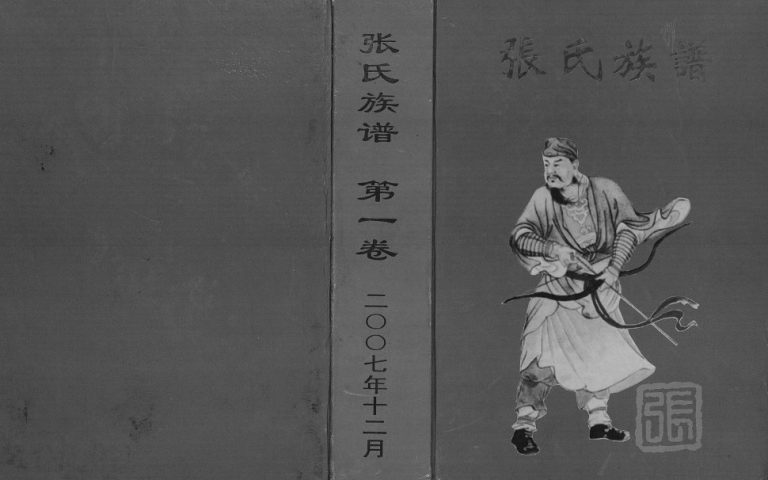 張氏族譜
张氏族谱 第一卷 二〇〇七年十二月
張